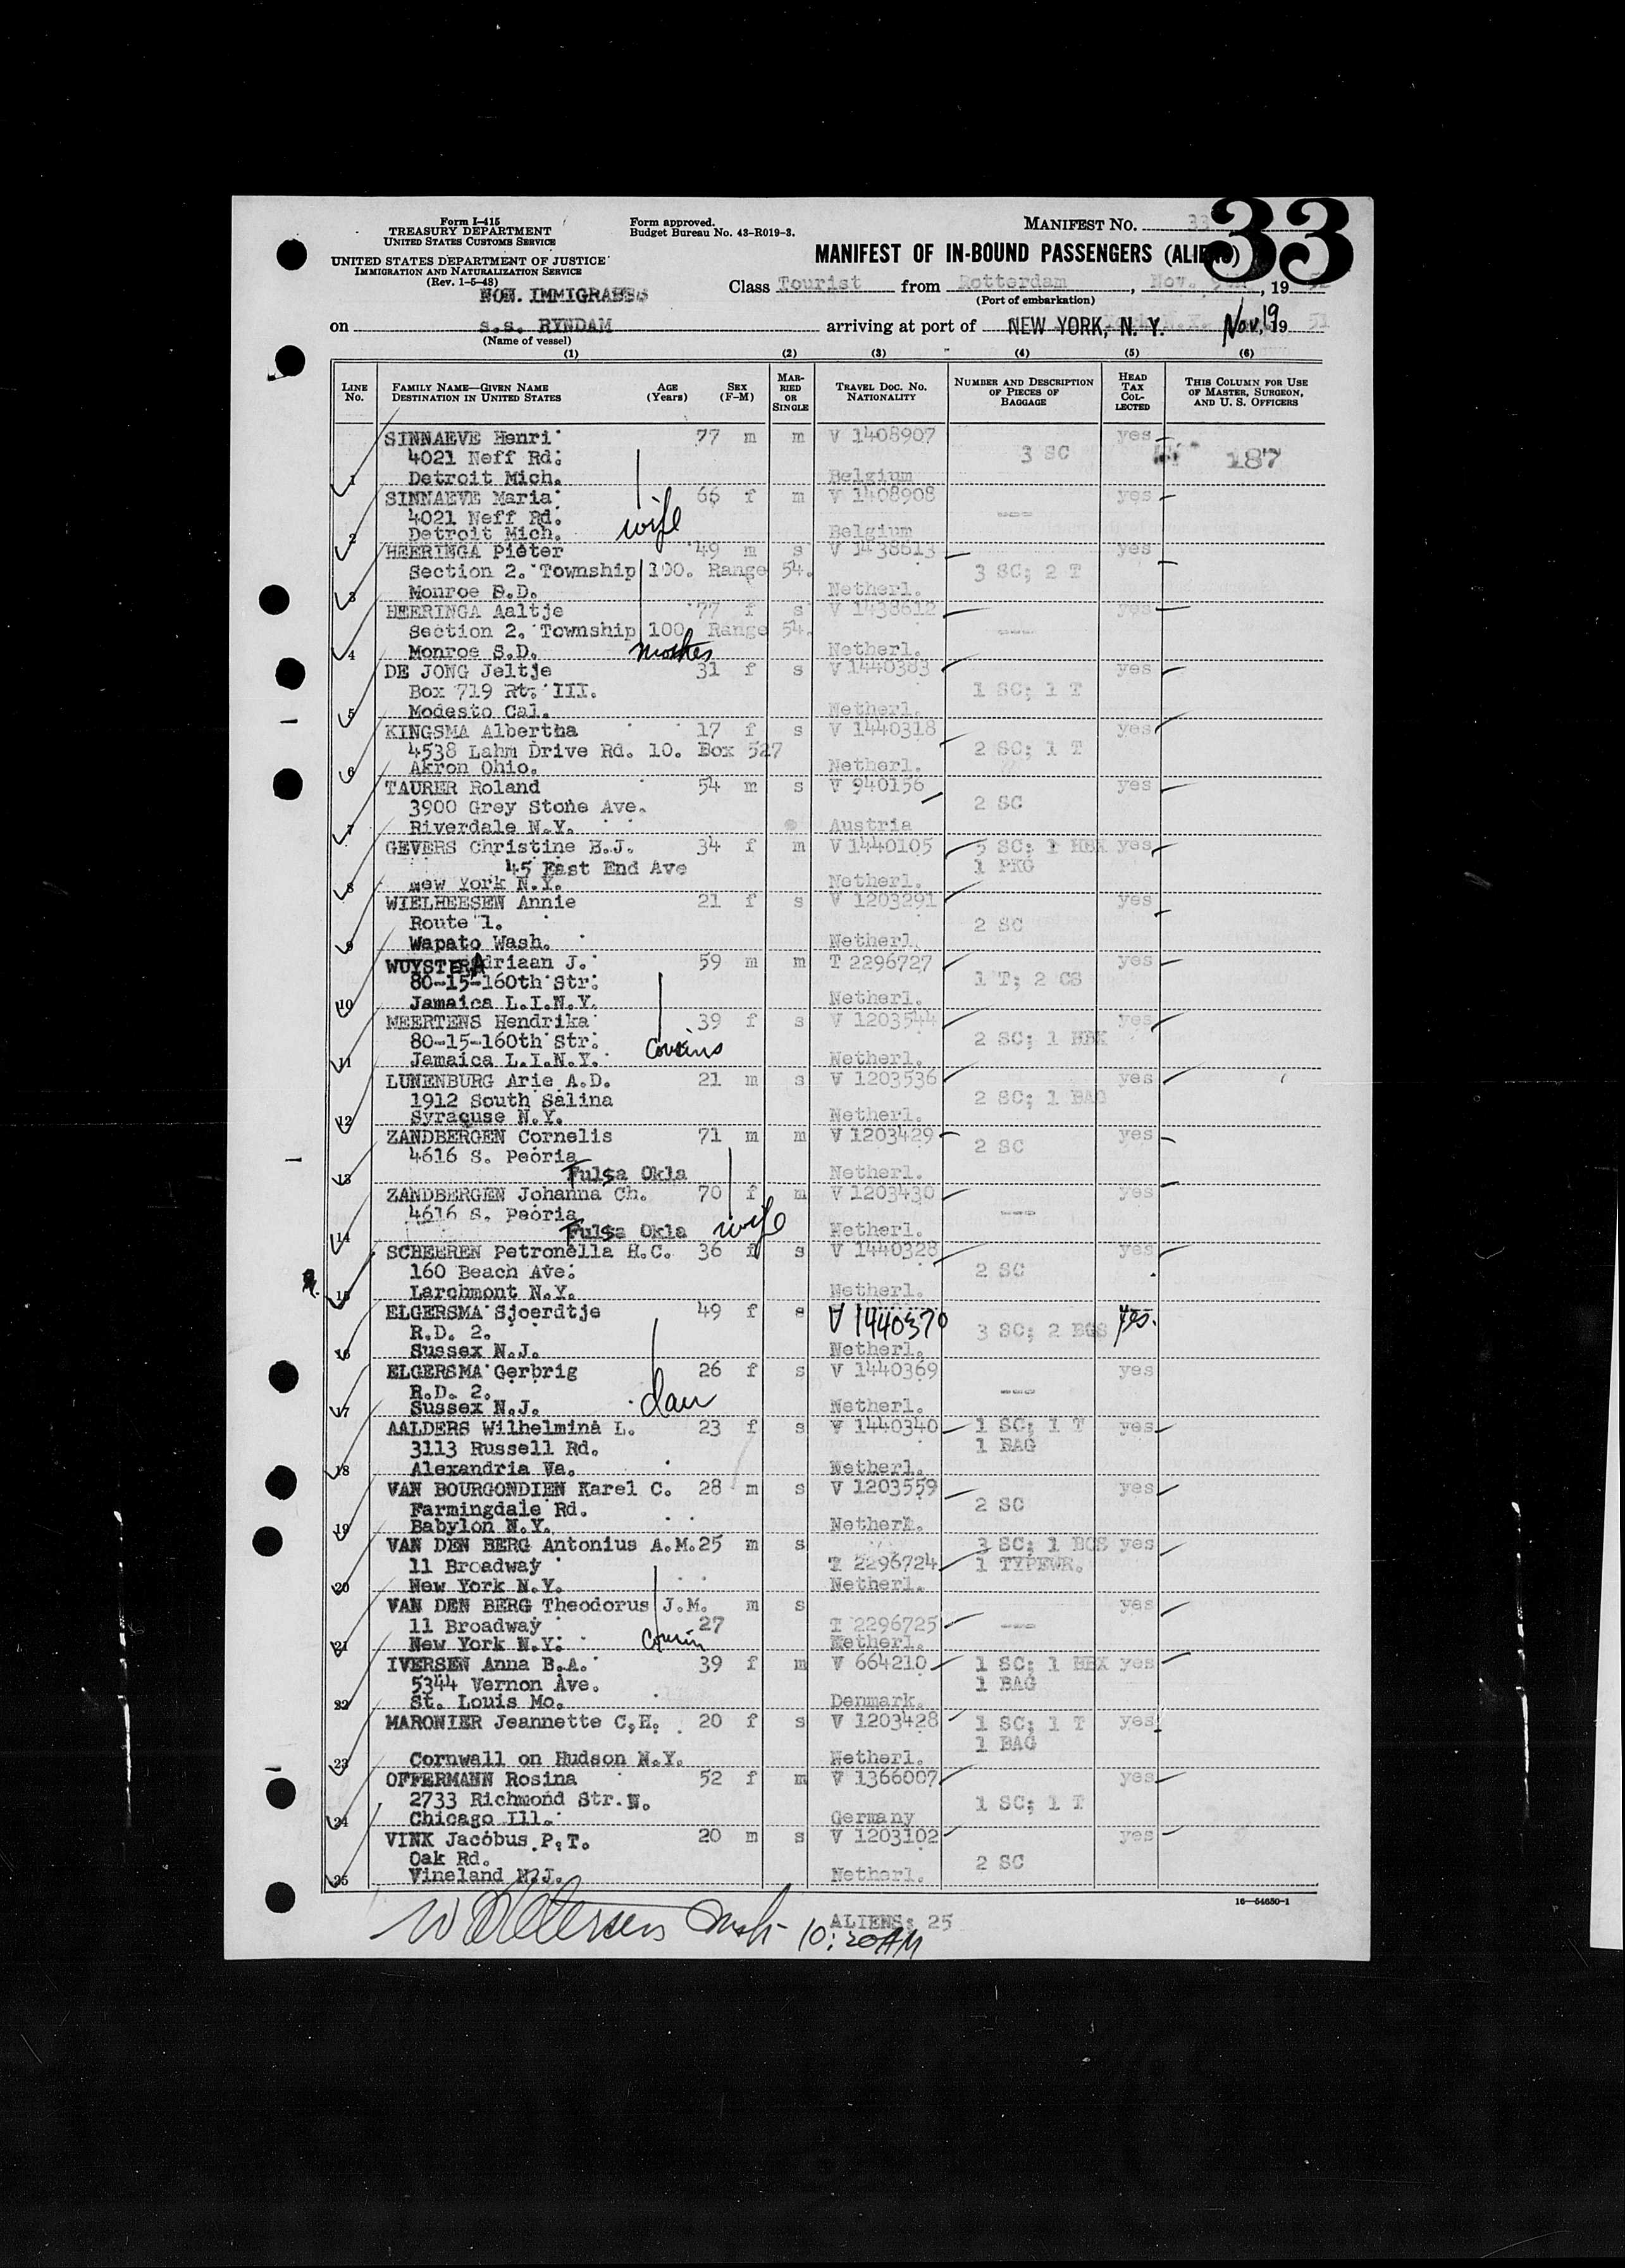 Form I-415
TREASURY DEPARTMENT
UNITED STATES CUSTOMS SERVICE
UNITED STATES DEPARTMENT OF JUSTICE
IMMIGRATION AND NATURALIZATION SERVICE
(Rev. 1-5-48)
Form approved.
Budget Bureau No. 43-R019-3.
MANIFEST NO. 33
33
MANIFEST OF IN-BOUND PASSENGERS (ALIENS)
NON. IMMIGRANTS
Class Tourist from Rotterdam, Nov. , 19
(Port of embarkation)
on s.s. RYNDAM arriving at port of NEW YORK, N. Y. Nov, 19 19 51
(Name of vessel)
(1) (2) (3) (4) (5) (6)
LINE No. FAMILY NAME—GIVEN NAME DESTINATION IN UNITED STATES AGE (Years) SEX (F-M) MARRIED OR SINGLE TRAVEL DOC. NO. NATIONALITY NUMBER AND DESCRIPTION OF PIECES OF BAGGAGE HEAD TAX COLLECTED THIS COLUMN FOR USE OF MASTER, SURGEON, AND U. S. OFFICERS
SINNAEVE Henri 77 m m V 1408907 yes
4021 Neff Rd. 3 SC 187
1 Detroit Mich. Belgium
SINNAEVE Maria 66 f m V 1408908 yes
4021 Neff Rd. wife ---
2 Detroit Mich. Belgium
HEERINGA Pieter 49 m s V 1438613 yes
Section 2. Township 100. Range 54. 3 SC; 2 T
3 Monroe S.D. Netherl.
HEERINGA Aaltje 77 f s V 1438612 yes
Section 2. Township 100. Range 54. ---
4 Monroe S.D. mother Netherl.
DE JONG Jeltje 31 f s V 1440383 yes
Box 719 Rt. III. 1 SC; 1 T
5 Modesto Cal. Netherl.
KINGSMA Albertha 17 f s V 1440318 yes
4538 Lahm Drive Rd. 10. Box 527 2 SC; 1 T
6 Akron Ohio. Netherl.
TAURER Roland 54 m s V 940156 yes
3900 Grey Stone Ave. 2 SC
7 Riverdale N.Y. Austria
GEVERS Christine E.J. 34 f m V 1440105 5 SC; 1 HBX yes
45 East End Ave 1 PKG
8 New York N.Y. Netherl.
WIELHEESEN Annie 21 f s V 1203291 yes
Route 1. 2 SC
9 Wapato Wash. Netherl.
WUYSTER Adriaan J. 59 m m T 2296727 yes
80-15-160th Str. 1 T; 2 CS
10 Jamaica L.I.N.Y. Netherl.
MEERTENS Hendrika 39 f s V 1203544 yes
80-15-160th Str. cousins 2 SC; 1 HBX
11 Jamaica L.I.N.Y. Netherl.
LUNENBURG Arie A.D. 21 m s V 1203536 yes
1912 South Salina 2 SC; 1 BAG
12 Syracuse N.Y. Netherl.
ZANDBERGEN Cornelis 71 m m V 1203429 yes
4616 S. Peoria 2 SC
13 Tulsa Okla Netherl.
ZANDBERGEN Johanna Ch. 70 f m V 1203430 yes
4616 S. Peoria ---
14 Tulsa Okla wife Netherl.
SCHEEREN Petronella H.C. 36 f s V 1440328 yes
160 Beach Ave. 2 SC
15 Larchmont N.Y. Netherl.
ELGERSMA Sjoerdtje 49 f s V 1440370 yes.
R.D. 2. 3 SC; 2 BGS
16 Sussex N.J. Netherl.
ELGERSMA Gerbrig 26 f s V 1440369 yes
R.D. 2. ---
17 Sussex N.J. dau Netherl.
AALDERS Wilhelmina L. 23 f s V 1440340 1 SC; 1 T yes
3113 Russell Rd. 1 BAG
18 Alexandria Va. Netherl.
VAN BOURGONDIEN Karel C. 28 m s V 1203559 yes
Farmingdale Rd. 2 SC
19 Babylon N.Y. Netherl.
VAN DEN BERG Antonius A.M. 25 m s 3 SC; 1 BGS yes
11 Broadway T 2296724 1 TYPEWR.
20 New York N.Y. Netherl.
VAN DEN BERG Theodorus J.M. m s yes
11 Broadway 27 T 2296725 ---
21 New York N.Y. cousin Netherl.
IVERSEN Anna B.A. 39 f m V 664210 1 SC; 1 HBX yes
5344 Vernon Ave. 1 BAG
22 St. Louis Mo. Denmark.
MARONIER Jeannette C.H. 20 f s V 1203428 1 SC; 1 T yes
1 BAG
23 Cornwall on Hudson N.Y. Netherl.
OFFERMANN Rosina 52 f m V 1366007 yes
2733 Richmond Str.N. 1 SC; 1 T
24 Chicago Ill. Germany
VINK Jacobus P.T. 20 m s V 1203102 yes
Oak Rd. 2 SC
25 Vineland N.J. Netherl.
16—54650-1
ALIENS: 25
10:20AM